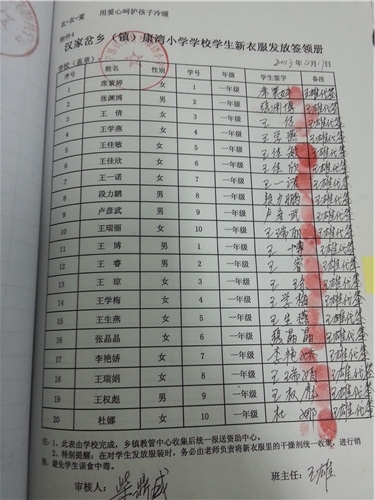 衣+衣=爱 用爱心呵护孩子冷暖
附件4
汉家岔乡（镇）康湾小学学校学生新衣服发放签领册
学校（盖章） 2013年11月17日
序号 姓名 性别 学号 年级 学生签字 备注
1 席紫婷 女 1 一年级 席紫婷 王雄代签
2 张渊博 男 2 一年级 张渊博 王雄代签
3 王倩 女 3 一年级 王倩 王雄代签
4 王学燕 女 4 一年级 王学燕 王雄代签
5 王佳敏 女 5 一年级 王佳敏 王雄代签
6 王佳欣 女 6 一年级 王佳欣 王雄代签
7 王一诺 女 7 一年级 王一诺 王雄代签
8 段力鹏 男 8 一年级 段力鹏 王雄代签
9 卢彦武 男 9 一年级 卢彦武 王雄代签
10 王瑞丽 女 10 一年级 王瑞丽 王雄代签
11 王博 男 1 一年级 王博 王雄代签
12 王睿 男 2 一年级 王睿 王雄代签
13 王琼 女 3 一年级 王琼 王雄代签
14 王学梅 女 4 一年级 王学梅 王雄代签
15 王生燕 女 5 一年级 王生燕 王雄代签
16 张晶晶 女 6 一年级 晶晶 王雄代签
17 李艳娇 女 7 一年级 李艳娇 王雄代签
18 王瑞娟 女 8 一年级 王瑞娟 王雄代签
19 王权彪 男 9 一年级 王权彪 王雄代签
20 杜娜 女 10 一年级 杜娜 王雄代签
注：1，此表由学校完成，乡镇教管中心收集后统一报送资助中心。
2，特别提醒：在对学生发放服装时，务必由老师负责将新衣服里的干燥剂统一收集，进行销
毁，避免学生误食中毒。
审核人： 班主任：王雄